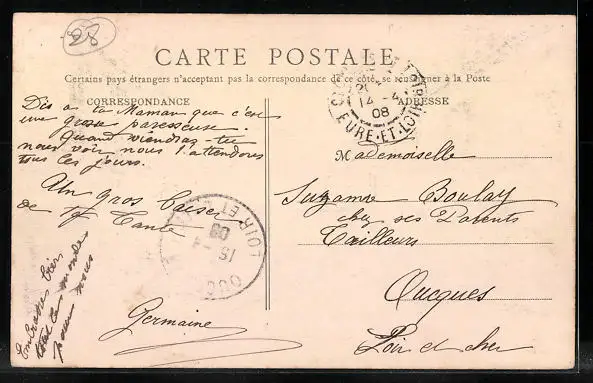 28
CARTE POSTALE
Certains pays étrangers n'acceptant pas la correspondance de ce côté, se renseigner à la Poste
CORRESPONDANCE
ADRESSE
14 -4
08
EURE-ET-LOIR
Dis a ta Maman que c'est
une grosse paresseuse.
Quand viendras-tu
nous voir nous t'attendons
tous les jours.
Un gros baiser
de ta Tante
Germaine
Embrasse bien
tout le monde
pour nous
Mademoiselle
Suzanne Boulay
chez ses Parents
Tailleurs
Oucques
Loir et cher
15 -4
08
LOIR ET
OUC